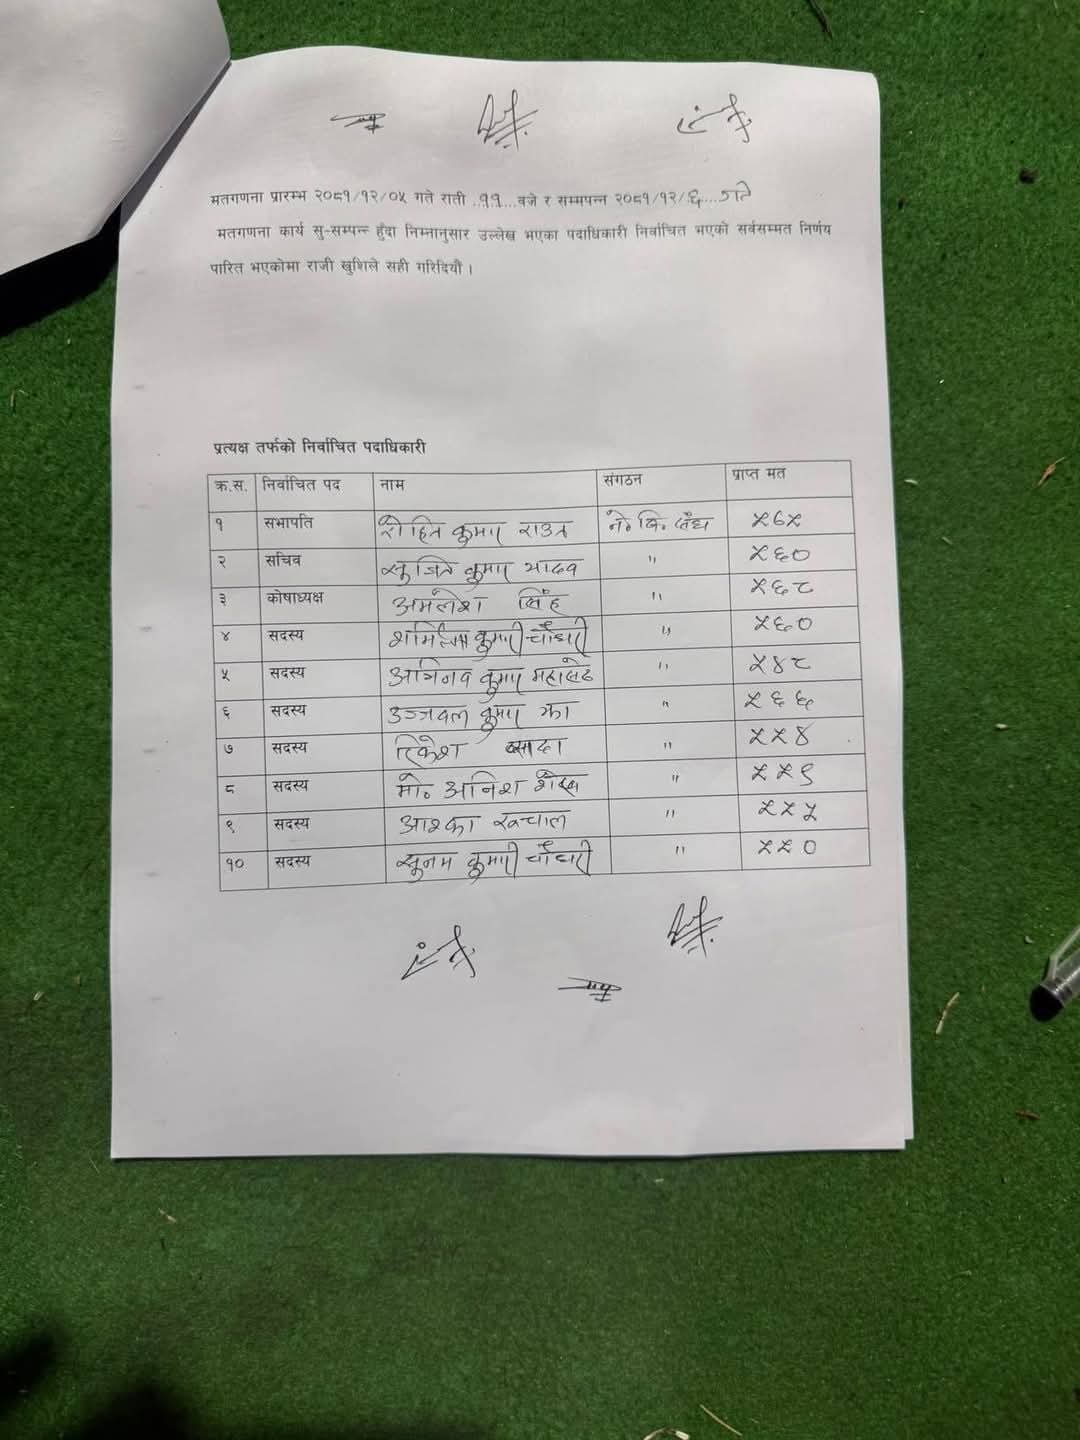 मतगणना प्रारम्भ २०८१/१२/०५ गते राती ..११... वजे र सम्पन्न २०८१/१२/६....गते
मतगणना कार्य सु-सम्पन्न हुँदा निम्नानुसार उल्लेख भएका पदाधिकारी निर्वाचित भएको सर्वसम्मत निर्णय
पारित भएकोमा राजी खुशिले सही गरिदियौं ।
प्रत्यक्ष तर्फको निर्वाचित पदाधिकारी
क्र.स. निर्वाचित पद नाम संगठन प्राप्त मत
१ सभापति रोहित कुमार राउत ने॰ वि॰ संघ ५७५
२ सचिव सुजित कुमार यादव " ५६०
३ कोषाध्यक्ष अमलेश सिंह " ५६८
४ सदस्य शर्मिला कुमारी चौधरी " ५६०
५ सदस्य अभिनव कुमार महासेठ " ५४८
६ सदस्य उज्जवल कुमार झा " ५६६
७ सदस्य रिकेश सादा " ५५४
८ सदस्य मो॰ अनिश शेख " ५५९
९ सदस्य आश्का " ५५५
१० सदस्य सुनम कुमारी चौधरी " ५५०